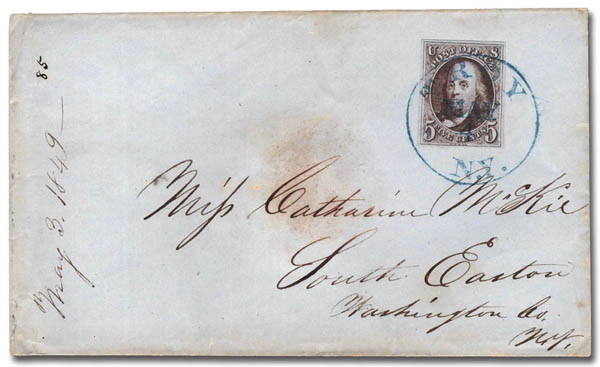 85
May 3. 1849
U S
POST OFFICE
5 FIVE CENTS 5
TROY
N.Y.
Miss Catharine McKie
South Easton
Washington Co.
N.Y.